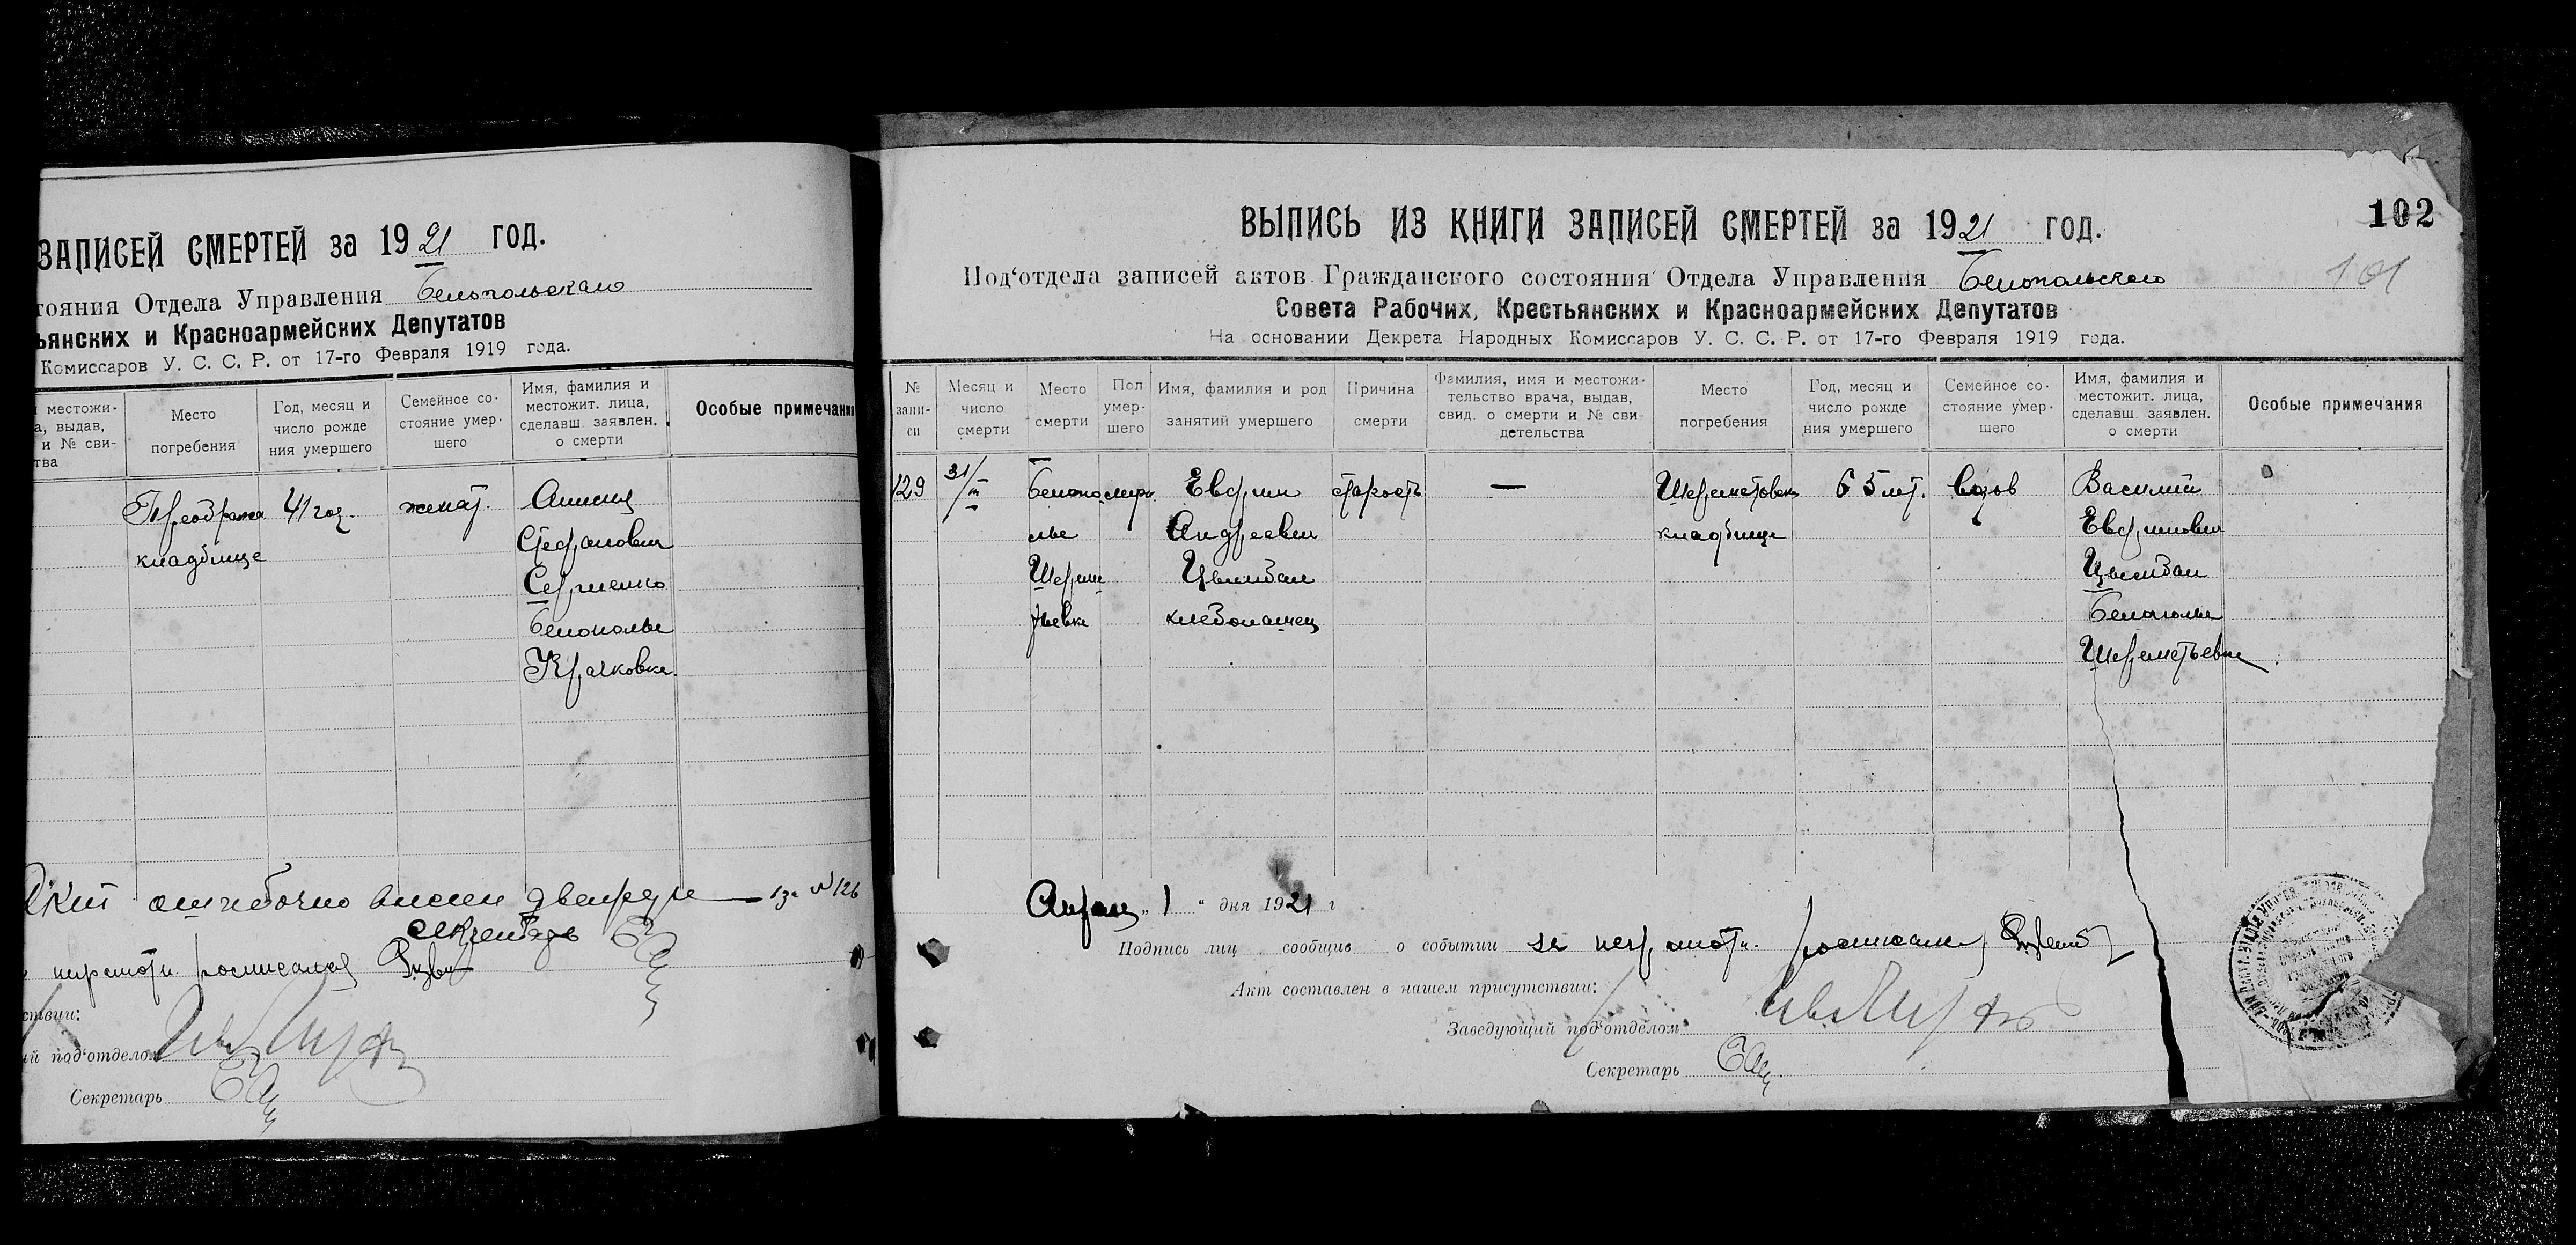 ЗАПИСЕЙ СМЕРТЕЙ за 1921 год.
тояния Отдела Управления Белопольскаго
ьянских и Красноармейских Депутатов
Комиссаров У. С. С. Р. от 17-го Февраля 1919 года.
местожи-
а, выдав,
и № сви-
тва
Место
погребения
Год, месяц и
число рожде
ния умершего
Семейное со-
стояние умер-
шего
Имя, фамилия и
местожит. лица,
сделавш. заявлен.
о смерти
Особые примечания
41 год.
женат.
кладбище
Стефановна
Сергиенко
Белополье
Крачковка
ошибочно внесен дважды — № 126
секретарь
расписался
ствии:
й под‘отделом
Секретарь
102
101
ВЫПИСЬ ИЗ КНИГИ ЗАПИСЕЙ СМЕРТЕЙ за 1921 год.
Под‘отдела записей актов Гражданского состояния Отдела Управления Белопольского
Совета Рабочих, Крестьянских и Красноармейских Депутатов
На основании Декрета Народных Комиссаров У. С. С. Р. от 17-го Февраля 1919 года.
№
запи-
си
Месяц и
число
смерти
Место
смерти
Пол
умер-
шего
Имя, фамилия и род
занятий умершего
Причина
смерти
Фамилия, имя и местожи-
тельство врача, выдав,
свид. о смерти и № сви-
детельства
Место
погребения
Год, месяц и
число рожде
ния умершего
Семейное со-
стояние умер-
шего
Имя, фамилия и
местожит. лица,
сделавш. заявлен.
о смерти
Особые примечания
129
31/III
Белопо
лье
Евфим
Андреевич
хлебопашец
старость
—
кладбище
65 лет.
вдов
Василий
Евфимович
Белополье
Шереметьевка
„1“ дня 1921 г
Подпись лиц сообщив о событии за неграмотн. расписался
Акт составлен в нашем присутствии:
Заведующий под‘отделом
Секретарь